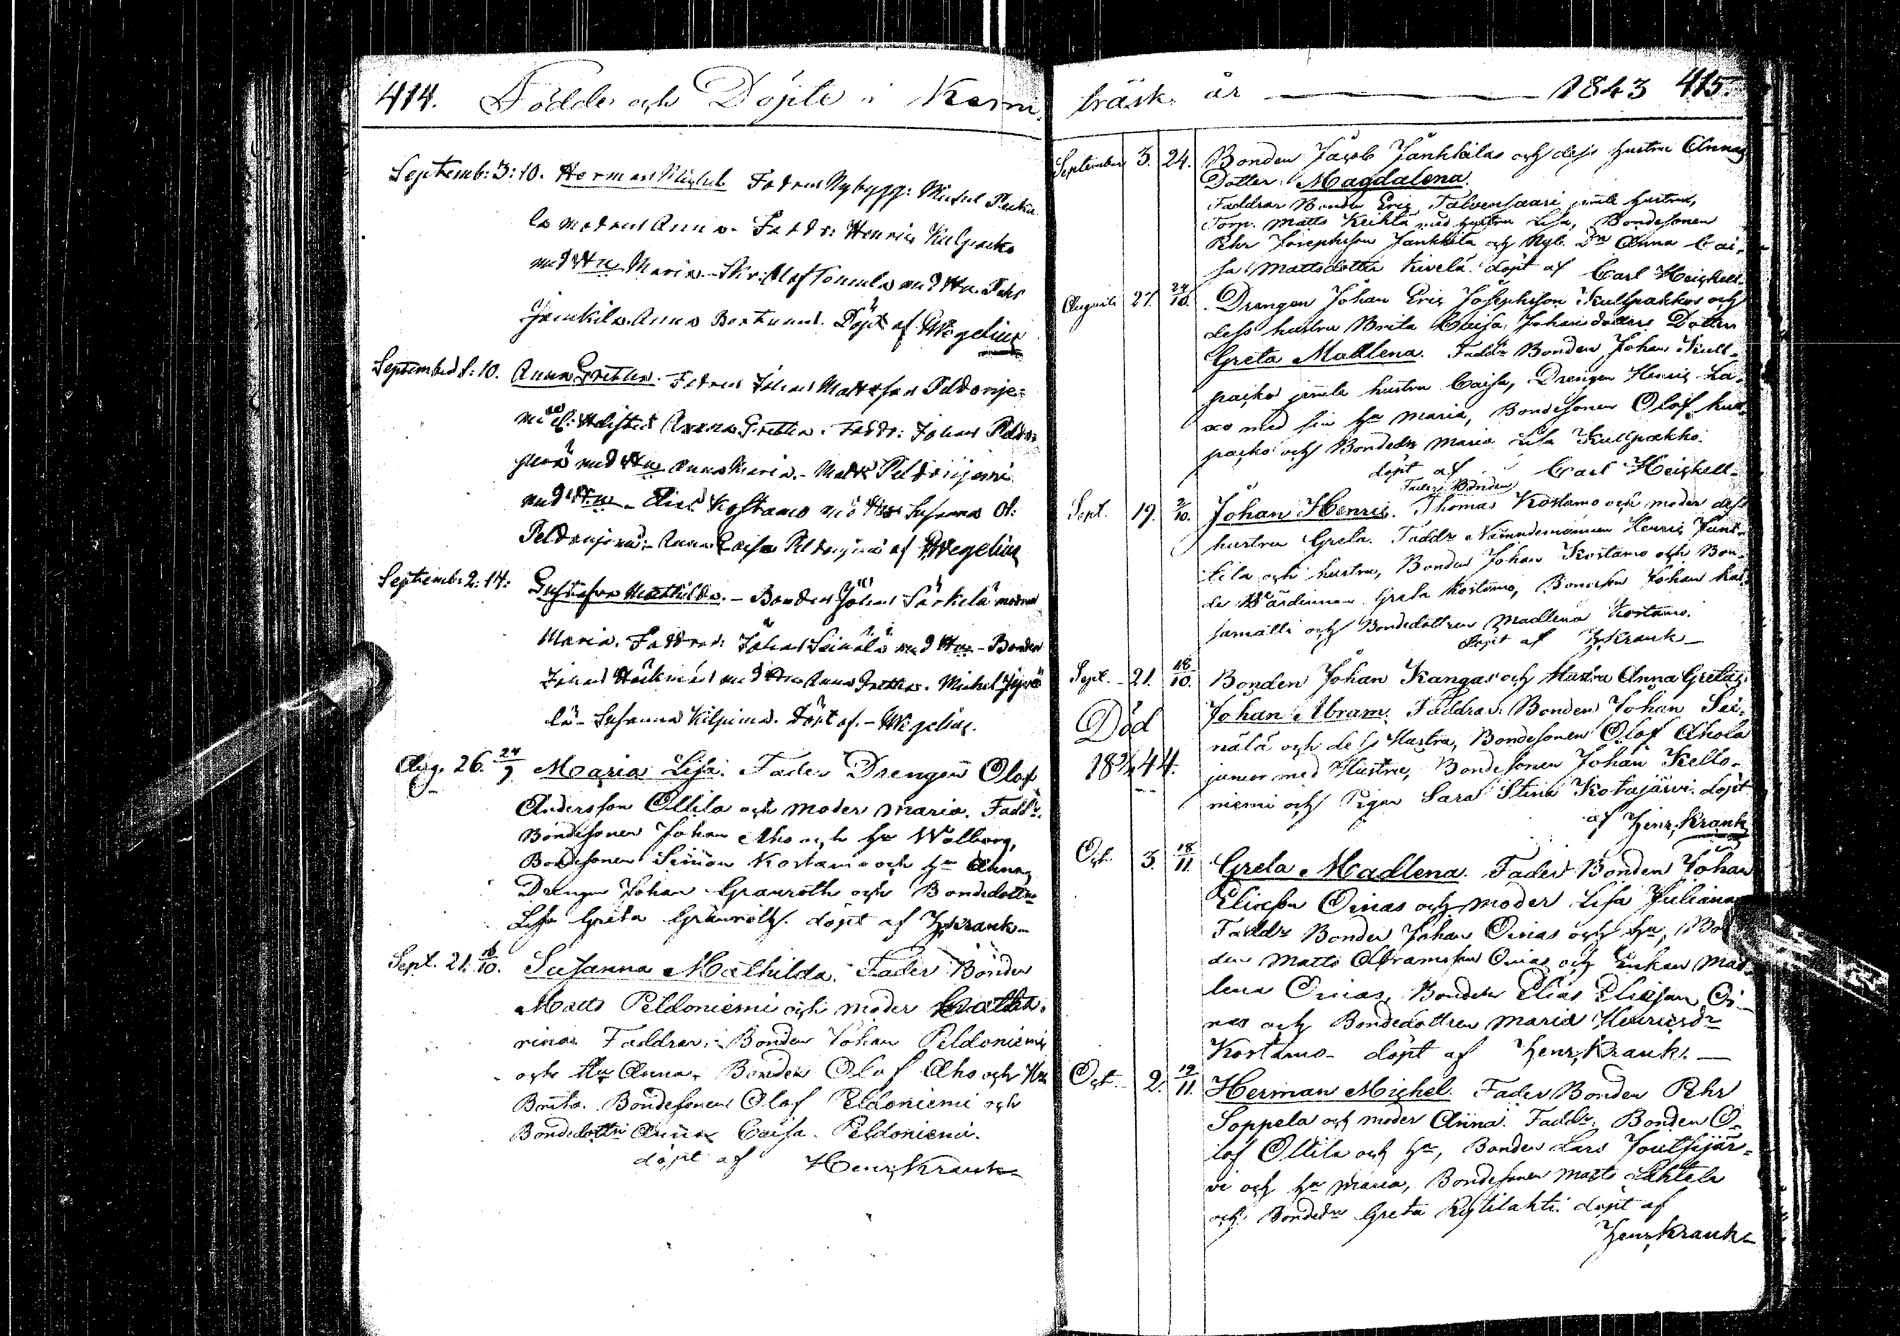 414. Födde och Döpte i Kemi
Septemb: 3: 10. Herman Michel Fadren Nybygg: Michel
modren Anna. Fadd: Henric Kulpacko
med H:u Maria. Olof Tonnela med H:u. Pehr
Jankila Anna. Döpt af Wegelius
September 8: 10. Anna Gretha. Fadren Johan Mattsson Peldonie-
mi Anna Gretha. Fadd: Johan Peldo-
med H:u Anna Maria. Matts Peldoniemi
med H:u Elias Kostamo med Susanna O:
Peldoniemi Anna Caisa Peldoniemi af Wegelius
Septemb: 2: 14: Mathilda. Bonden Johan Särkelä modren
Maria. Faddrar: Johan Seinälä med H:u Bonden
Johan med H:u Anna Gretha. Michel
lä Susanna Kilpimaa. Döpt af Wegelius.
Aug. 26. 24/9 Maria Lisa. Fader Drengen Olof
Andersson Ollila och moder Maria. Fadd:r
Bondesonen Johan Aho och h:u Walborg,
Bondesonen Simon Kostamo och h:u Anna,
Drengen Johan Granroth och Bondedottn
Lisa Greta Granroth. döpt af H. Krank
Sept. 21. /10. Susanna Mathilda. Fader Bonden
Matts Peldoniemi och moder Catha-
rina. Faddrar: Bonden Johan Peldoniemi
och H:u Anna, Bonden Olof Aho och H:u
Brita. Bondesonen Olof Peldoniemi och
Bondedottn Anna Caisa Peldoniemi.
döpt af Henr. Krank
träsk år 1843 415.
September 3. 24. Bonden Jacob Jankkilas och dess hustru Annas
Dotter Magdalena.
Faddrar Bonden Eric Talvensaari jemte hustru,
Torp. Matts Keihtä med hustru Lisa, Bondesonen
Pehr Josephsson Jankkila och Nyb. D:r Anna Cai-
sa Mattsdotter Kivelä. döpt af Carl Heickell
Augusti 27. 24/10. Drengen Johan Eric Josephsson Kulpakkos och
dess hustru Brita Caisa Johansdotters Dotter
Greta Madlena. Fadd:r Bonden Johan Kull-
packo jemte hustru Caisa, Drengen Henric La-
med sin h:u Maria, Bondesonen Olof Kull-
packo och Bonded:r Maria Lisa Kullpakko.
döpt af Carl Heickell
Fader Bonden
Sept. 19. 2/10. Johan Henric. Thomas Kostamo och moder dess
hustru Greta. Fadd:r Nämndemannen Henric Jank-
kila och hustru, Bonden Johan Kostamo och Bon-
de Wärdinnan Greta Kostamo, Bondeson Johan
och Bondedottren Madlena Kostamo.
döpt af H. Krank
Sept. 21. 18/10. Bonden Johan Kangas och Hustru Anna Gretas
Johan Abram. Faddrar: Bonden Johan Sei-
Död
nälä och dess Hustru, Bondesonen Olof Ahola
18 44.
junior med Hustru, Bondesonen Johan Kello-
niemi och Pigan Sara Stina Kotajärvi. döpt
af Henr. Krank
Oct. 3. 18/11. Greta Madlena. Fader Bonden Johan
Eliasson Oinas och moder Lisa Juliana
Fadd:r Bonden Johan Oinas och h:u, Bon-
den Matts Abramsson Oinas och Enkan Mad-
lena Oinas, Bonden Elias Eliasson Oi-
nas och Bondedottren Maria Henricsd:r
Kostamo. döpt af Henr. Krank.
Oct. 2. 12/11. Herman Michel. Fader Bonden Pehr
Soppela och moder Anna. Fadd:r Bonden O-
lof Ollila och h:u, Bonden Lars Joutsijär-
vi och h:u Maria, Bondesonen Matts Lahtela
och Bonded:r Greta Kystilahti. döpt af
Henr. Krank